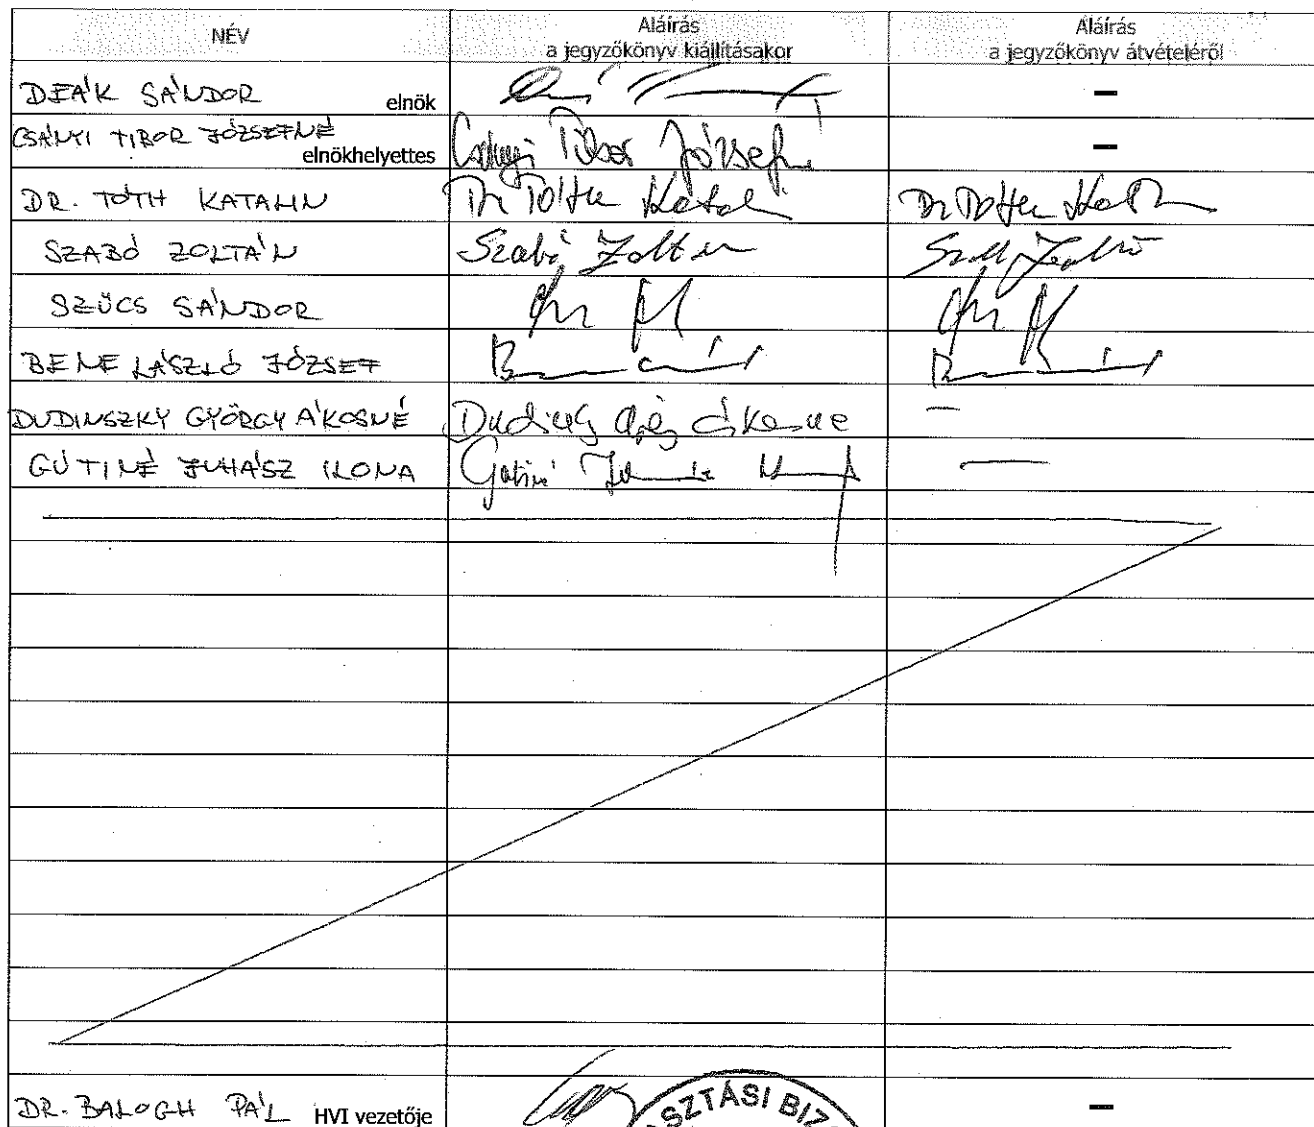 NÉV Aláírás a jegyzőkönyv kiállításakor Aláírás a jegyzőkönyv átvételéről
DEÁK SÁNDOR elnök — 
CSÁNYI TIBOR JÓZSEFNÉ elnökhelyettes Csányi Tibor Józsefné —
DR. TÓTH KATALIN Dr Tóth Katalin Dr Tóth
SZABÓ ZOLTÁN Szabó Zoltán
SZŰCS SÁNDOR
BENE LÁSZLÓ JÓZSEF
DUDINSZKY GYÖRGY ÁKOSNÉ —
GÚTINÉ JUHÁSZ ILONA Gutiné —
DR. BALOGH PÁL HVI vezetője —
SZTÁSI BIZ